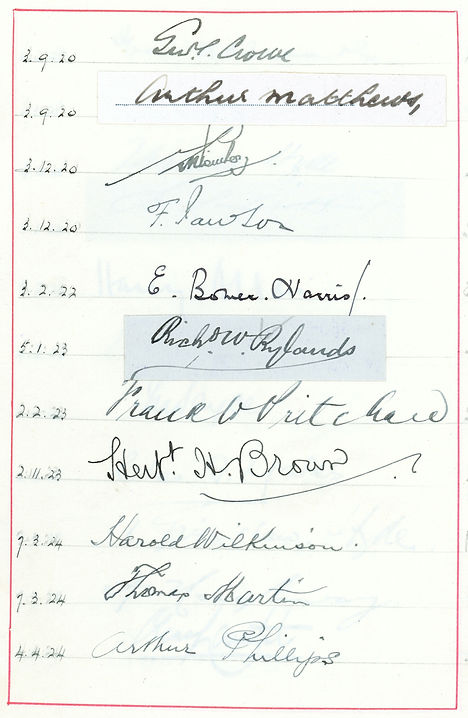 3.9.20 Geo. C. Crowe
3.9.20 Arthur Matthews,
3.12.20
3.12.20 F. Lawson
3.2.22 E. Bower. Harris.
5.1.23 Richd W Rylands
2.2.23 Frank W Pritchard
2.11.23 Herbt. H. Brown
7.3.24 Harold Wilkinson.
7.3.24 Thomas Martin
4.4.24 Arthur Phillips